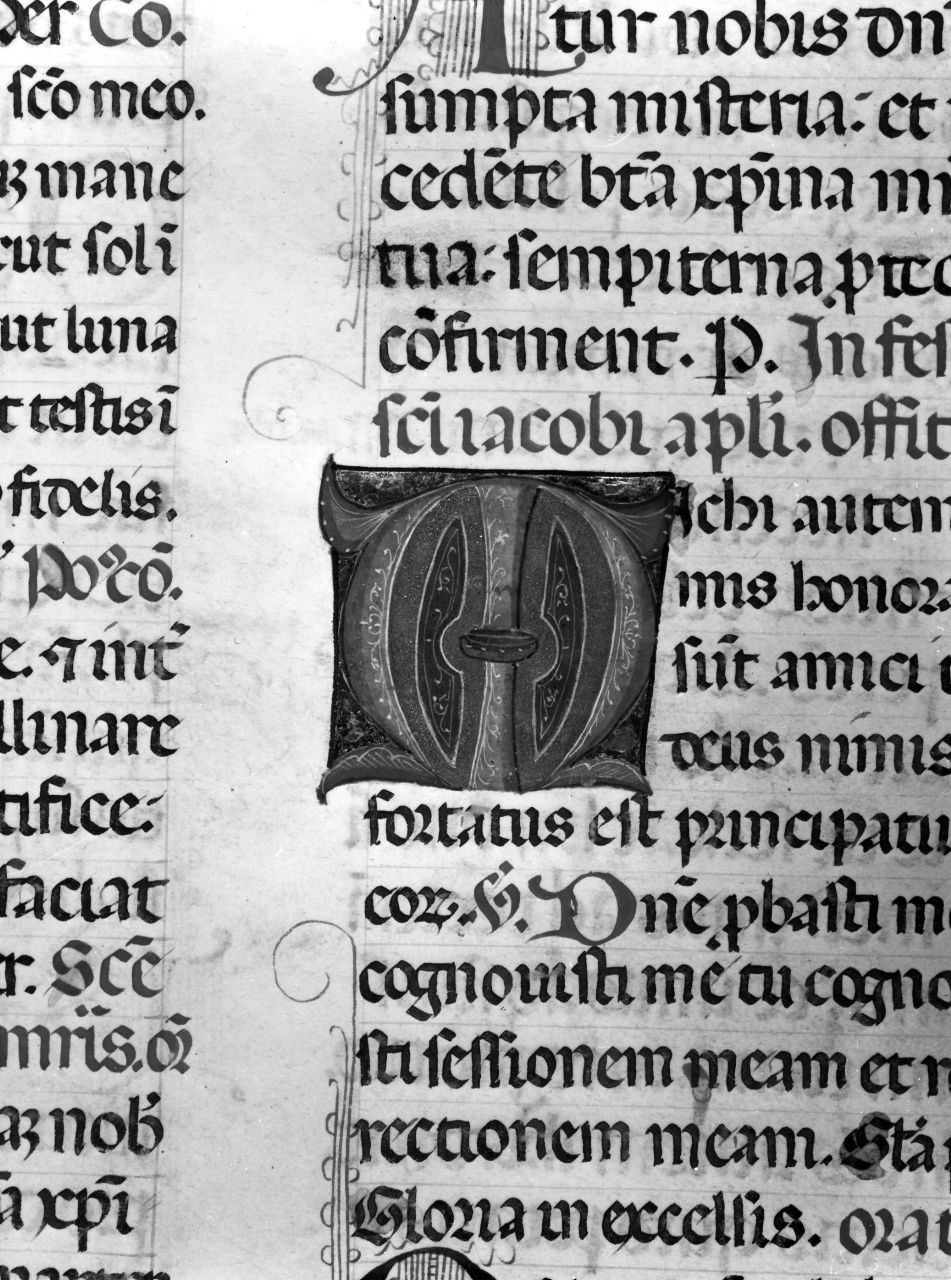 der Co.
sc̄o meo.
mane
cut sol ī
ut luna
t testis ī
fidelis.
Po⁹cō.
e. ⁊ int̄
llinare
tifice:
faciat
r. Scē
mr̄is. or̄
aꝫ nob̄
xp̄i
tur nobis dn
sumpta misteria: et
cedēte btā xp̄ina
tua: sempiterna ꝓtec
cōfirment. P. In fes
sc̄i iacobi apl̄i. offit
Michi autem
nimis honora
sūt amici
deus nimis
fortatus est principatu
eoꝝ. V̇. Dn̄e ꝓbasti m
cognouisti me tu cogno
sti sessionem meam et r
rectionem meam. Stā
Gloria in excelsis. orat